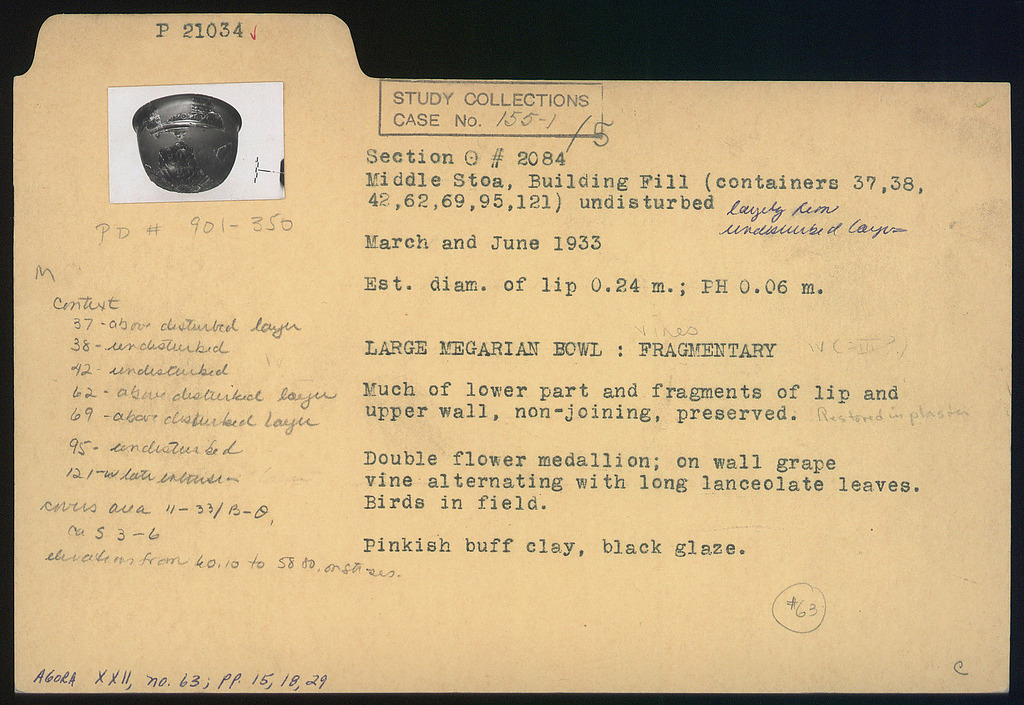 P 21034 ✓
STUDY COLLECTIONS
CASE No. 155-1
/5
Section Θ # 2084
Middle Stoa, Building Fill (containers 37,38,
42,62,69,95,121) undisturbed largely from
undisturbed layer
PD # 901-350
March and June 1933
M
Est. diam. of lip 0.24 m.; PH 0.06 m.
Context
37 - above disturbed layer
38 - undisturbed
42 - undisturbed
62 - above disturbed layer
69 - above disturbed layer
95 - undisturbed
121 - w late
covers area 11-33/B-Θ,
ca S 3-6
elevations from 60.10 to 58.80.
vines
LARGE MEGARIAN BOWL : FRAGMENTARY
Much of lower part and fragments of lip and
upper wall, non-joining, preserved. Restored in plaster
Double flower medallion; on wall grape
vine alternating with long lanceolate leaves.
Birds in field.
Pinkish buff clay, black glaze.
#63
AGORA XXII, no. 63; pp. 15, 18, 29
C